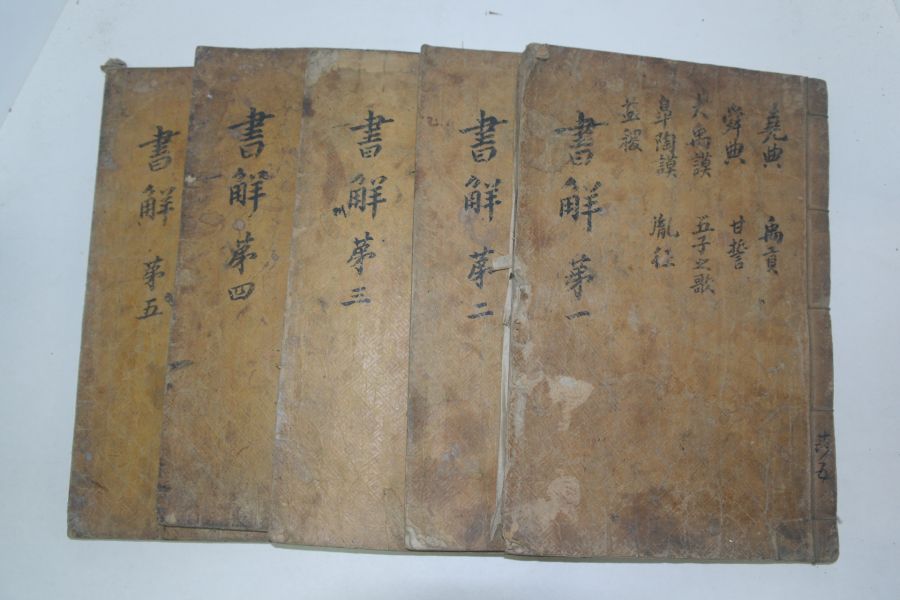 書觧 苐一
堯典 禹貢
舜典 甘誓
大禹謨 五子之歌
皐陶謨 胤征
益稷
共五
書觧 苐二
書觧 苐三
書觧 苐四
書觧 苐五